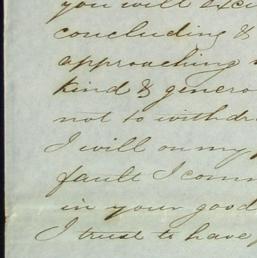 you will excu
concluding &
approaching
kind & genero
not to withdr
I will on my
fault I comm
in your good
I trust to have